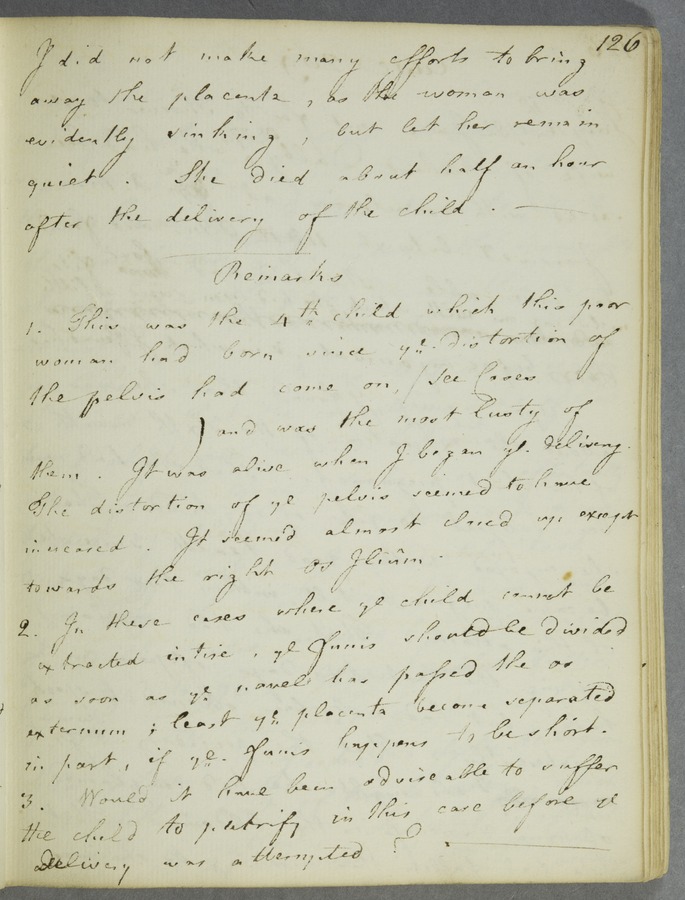 126
I did not make many efforts to bring
away the placenta, as the woman was
evidently sinking, but let her remain
quiet. She died about half an hour
after the delivery of the child. —
Remarks
1. This was the 4th child which this poor
woman had born since ye. distortion of
the pelvis had come on, (see Cases
) and was the most lusty of
them. It was alive when I began ye. delivery.
The distortion of ye pelvis seemed to have
increased. It seem'd almost closed up except
towards the right Os Ilium.
2. In these cases where ye child cannot be
extracted intire, ye Funis should be divided
as soon as ye navel has passed the os
externum; least ye placenta become separated
in part, if ye. Funis happens to be short.
3. Would it have been adviseable to suffer
the child to putrify in this case before ye
delivery was attempted?